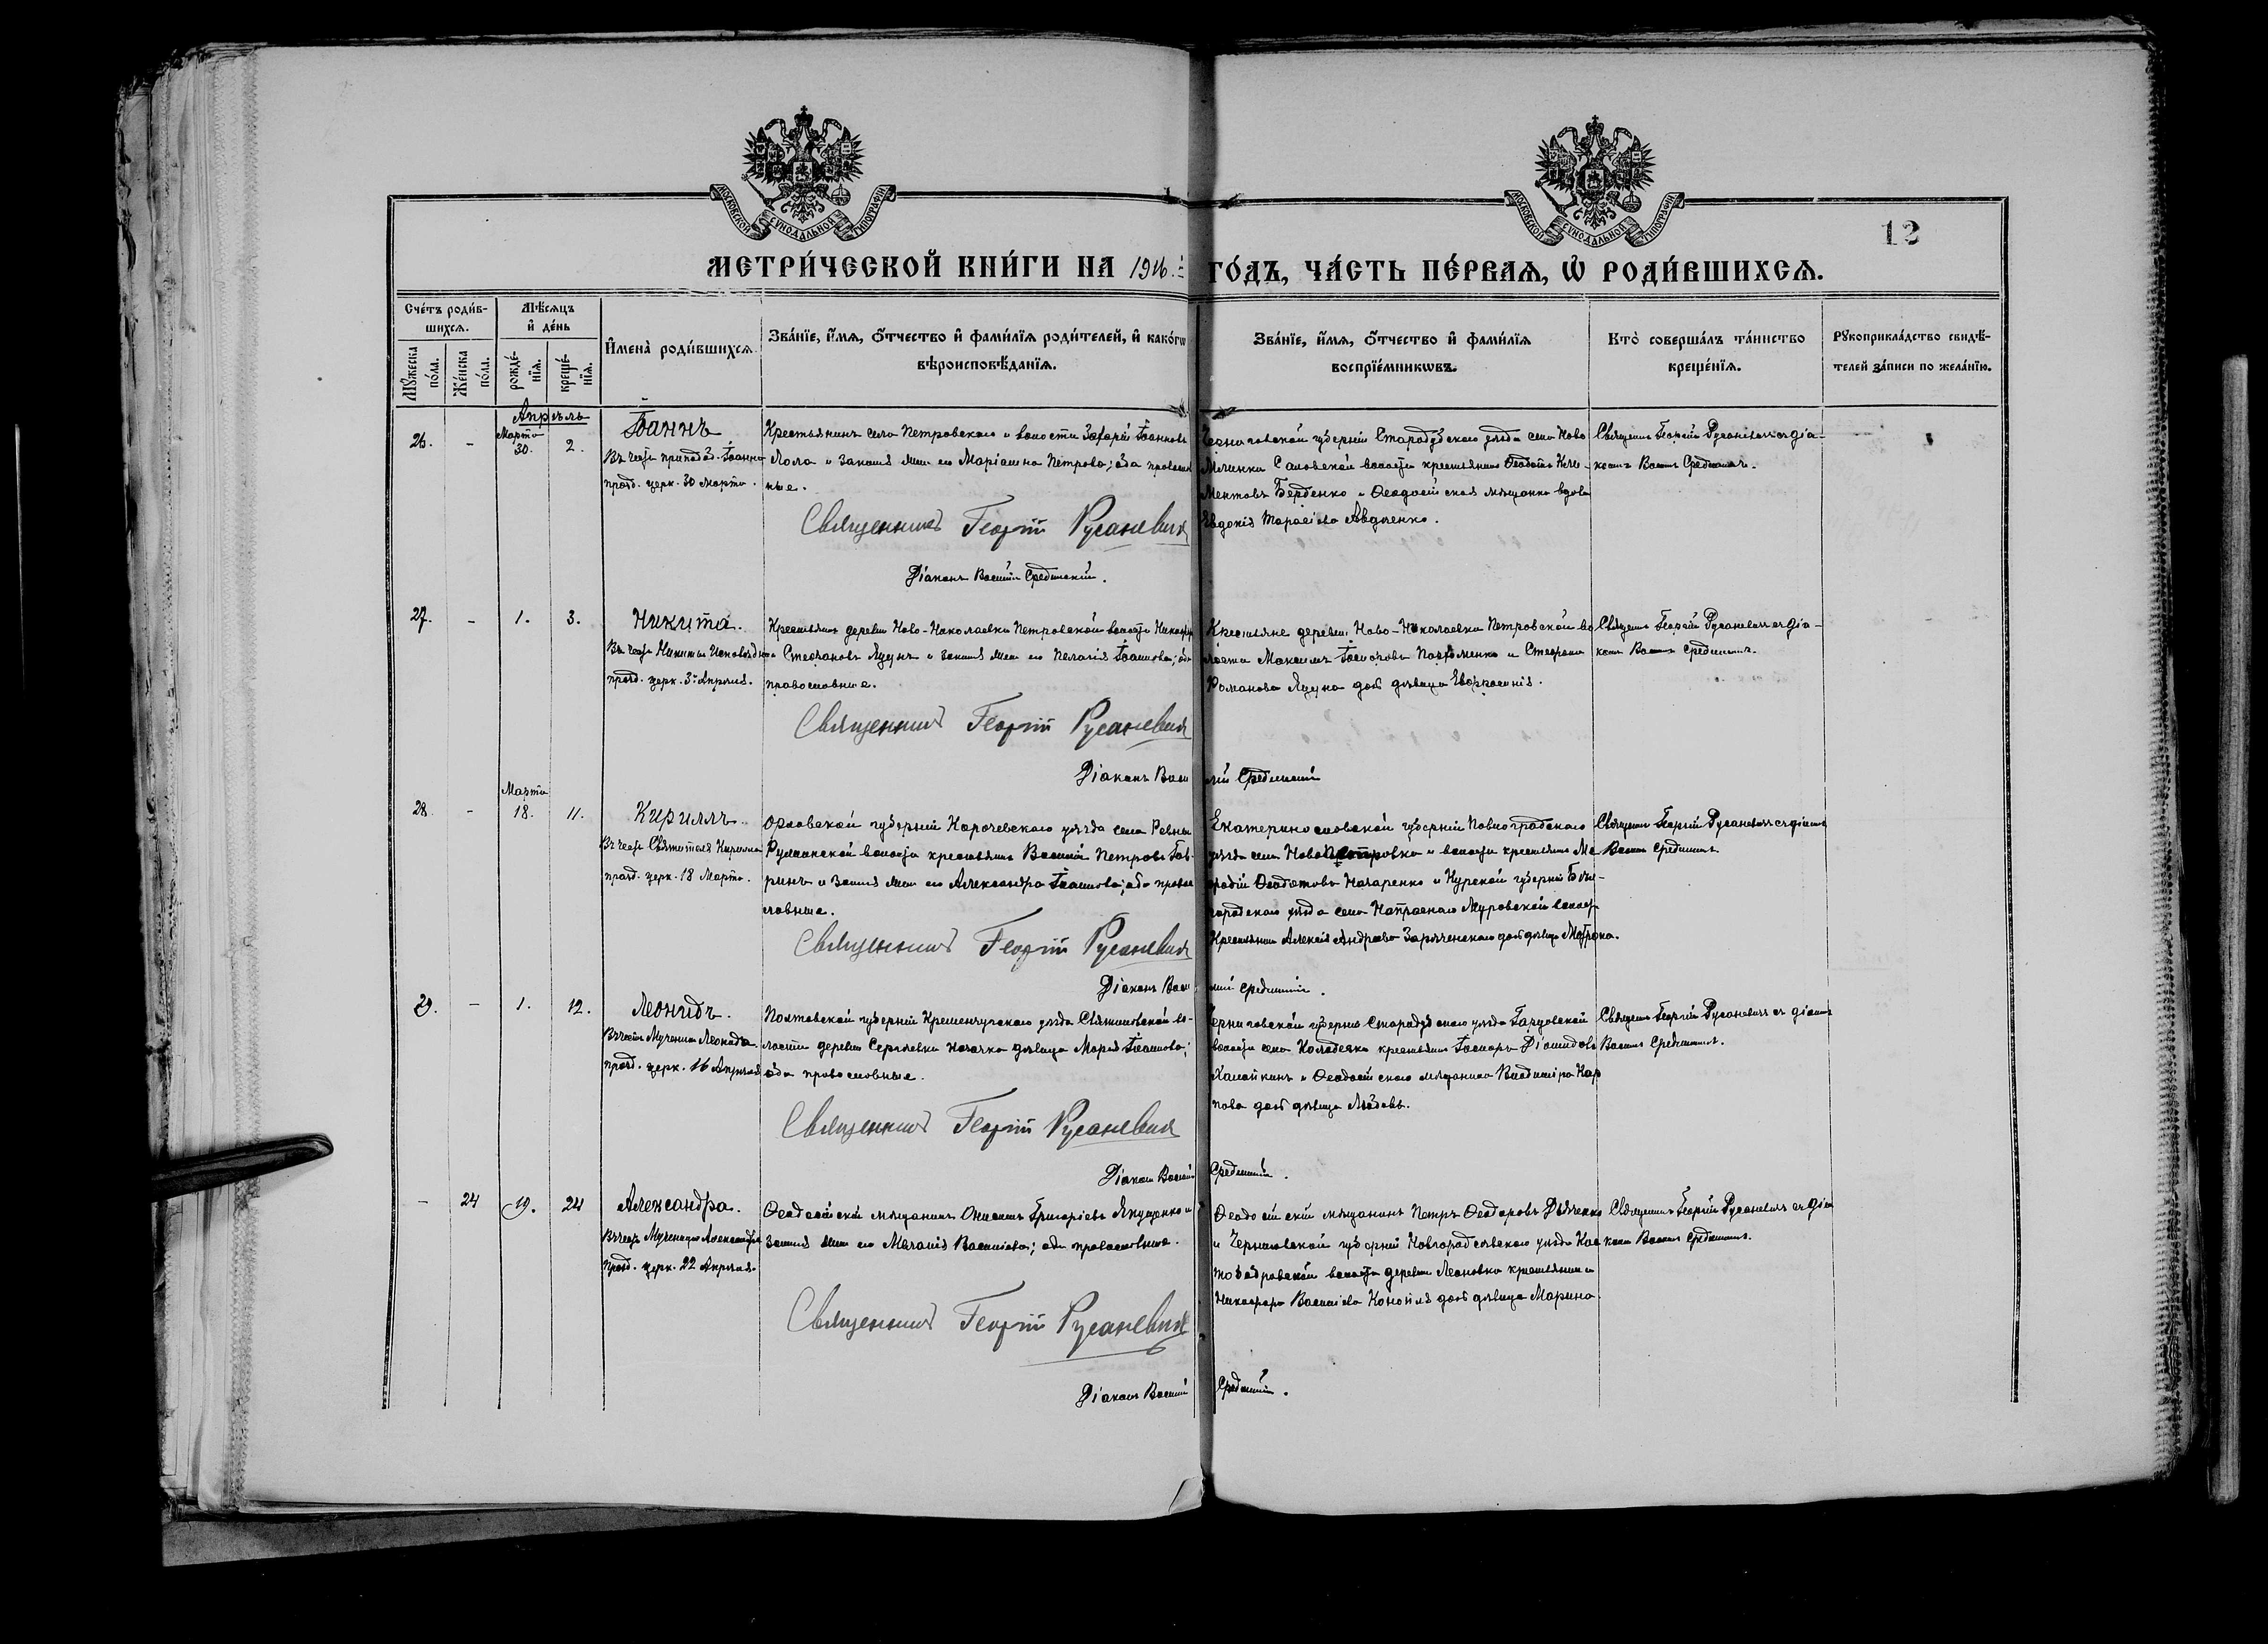 МОСКОВСКОЙ СѴНОДАЛЬНОЙ ТИПОГРАФІИ
МОСКОВСКОЙ СѴНОДАЛЬНОЙ ТИПОГРАФІИ
12
МЕТРИ́ЧЕСКОЙ КНИ́ГИ НА 1916
ГО́ДЪ, ЧА́СТЬ ПЕ́РВАѦ, Ѡ҆ РОДИ́ВШИХСѦ.
Счетъ роди́в-
шихсѧ.
Мѣсѧцъ
и҆ де́нь
Мꙋжеска по́ла.
Же́нска по́ла.
рожде́-
нїѧ.
креще́-
нїѧ.
И҆мена̀ роди́вшихсѧ
Зва́нїе, и҆́мѧ, ѻ҆́тчество и҆ фами́лїѧ роди́телей, и҆ како́гѡ
вѣроисповѣ́данїѧ.
Зва́нїе, и҆́мѧ, ѻ҆́тчество и҆ фами́лїѧ
воспрїе́мникѡвъ.
Кто̀ соверша́лъ та́инство
креще́нїѧ.
Рꙋкоприкла́дство свидѣ́-
телей за́писи по жела́нїю.
Апрѣль
26. - Марта 30. 2.
Іоаннъ
Въ честь преподоб. Іоанна
празд. церк. 30 Марта.
Крестьянинъ села Петровскаго и волости Захарій Іоанновъ
Лола и законная жена его Маріамна Петрова; оба православ
ные.
Священникъ Георгій Русаневичъ
Діаконъ Василій Срединскій.
Черниговской губерніи Стародубскаго уѣзда села Ново
Млинки волости крестьянинъ Ѳеодотъ Кли-
ментовъ Берденко и Ѳеодосійская мѣщанка вдова
Евдокія Тарасіева Авдѣенко.
Священникъ Георгій Русаневичъ съ діа-
кономъ Василіемъ Срединскимъ.
27. - 1. 3.
Никита.
Въ честь Никиты Исповѣдника
празд. церк. 3го Апрѣля.
Крестьянинъ деревни Ново-Николаевки Петровской волости Никифоръ
Стефановъ Яцунъ и законная жена его Пелагія Іоаннова; оба
православные.
Священникъ Георгій Русаневичъ
Діаконъ Василій Срединскій
Крестьяне деревни Ново-Николаевки Петровской во
лости Максимъ Пархоменко и Стефана
Романова Яцуна дочь дѣвица Евфросинія.
Священникъ Георгій Русаневичъ съ діа-
кономъ Василіемъ Срединскимъ.
28. - Марта 18. 11.
Кириллъ.
Въ честь Святителя Кирилла
празд. церк. 18 Марта.
Орловской губерніи Карачевскаго уѣзда села Ревны
волости крестьянинъ Василій Петровъ Гав-
ринъ и законная жена его Александра Іоаннова; оба право
славные.
Священникъ Георгій Русаневичъ
Діаконъ Василій Срединскій.
Екатеринославской губерніи Павлоградскаго
уѣзда села Новопетровка и волости крестьянинъ Ме
ѳодій Ѳеодотовъ Назаренко и Курской губерніи Бѣл-
городскаго уѣзда села Муровской волости
крестьянина Алексія Андреева Зарѣченскаго дочь дѣвица Матрона.
Священникъ Георгій Русаневичъ съ діакономъ
Василіемъ Срединскимъ
29. - 1. 12.
Леонидъ.
Въ честь Мученика Леонида
празд. церк. 16 Апрѣля
Полтавской губерніи Кременчугскаго уѣзда во-
лости деревни Сергѣевки казачка дѣвица Марія Іоаннова;
оба православные.
Священникъ Георгій Русаневичъ
Діаконъ Василій Срединскій.
Черниговской губерніи Стародубскаго уѣзда
волости села крестьянинъ Діомидовъ
Халайкинъ и Ѳеодосійскаго мѣщанина Владиміра Кар
пова дочь дѣвица Любовь.
Священникъ Георгій Русаневичъ съ діакономъ
Василіемъ Срединскимъ.
- 24 19. 24
Александра.
Въ честь Мученицы Александры
празд. церк. 22 Апрѣля.
Ѳеодосійскій мѣщанинъ Онисимъ Григоріевъ Якущенко и
законная жена его Меланія Васильева; оба православные.
Священникъ Георгій Русаневичъ
Діаконъ Василій Срединскій.
Ѳеодосійскій мѣщанинъ Петръ Ѳеодоровъ Дьяченко
и Черниговской губерніи Новгородсѣверскаго уѣзда Кос
тобобровской волости деревни Леоновка крестьянина
Никифора Васильева дочь дѣвица Марина.
Священникъ Георгій Русаневичъ съ діа
кономъ Василіемъ Срединскимъ.